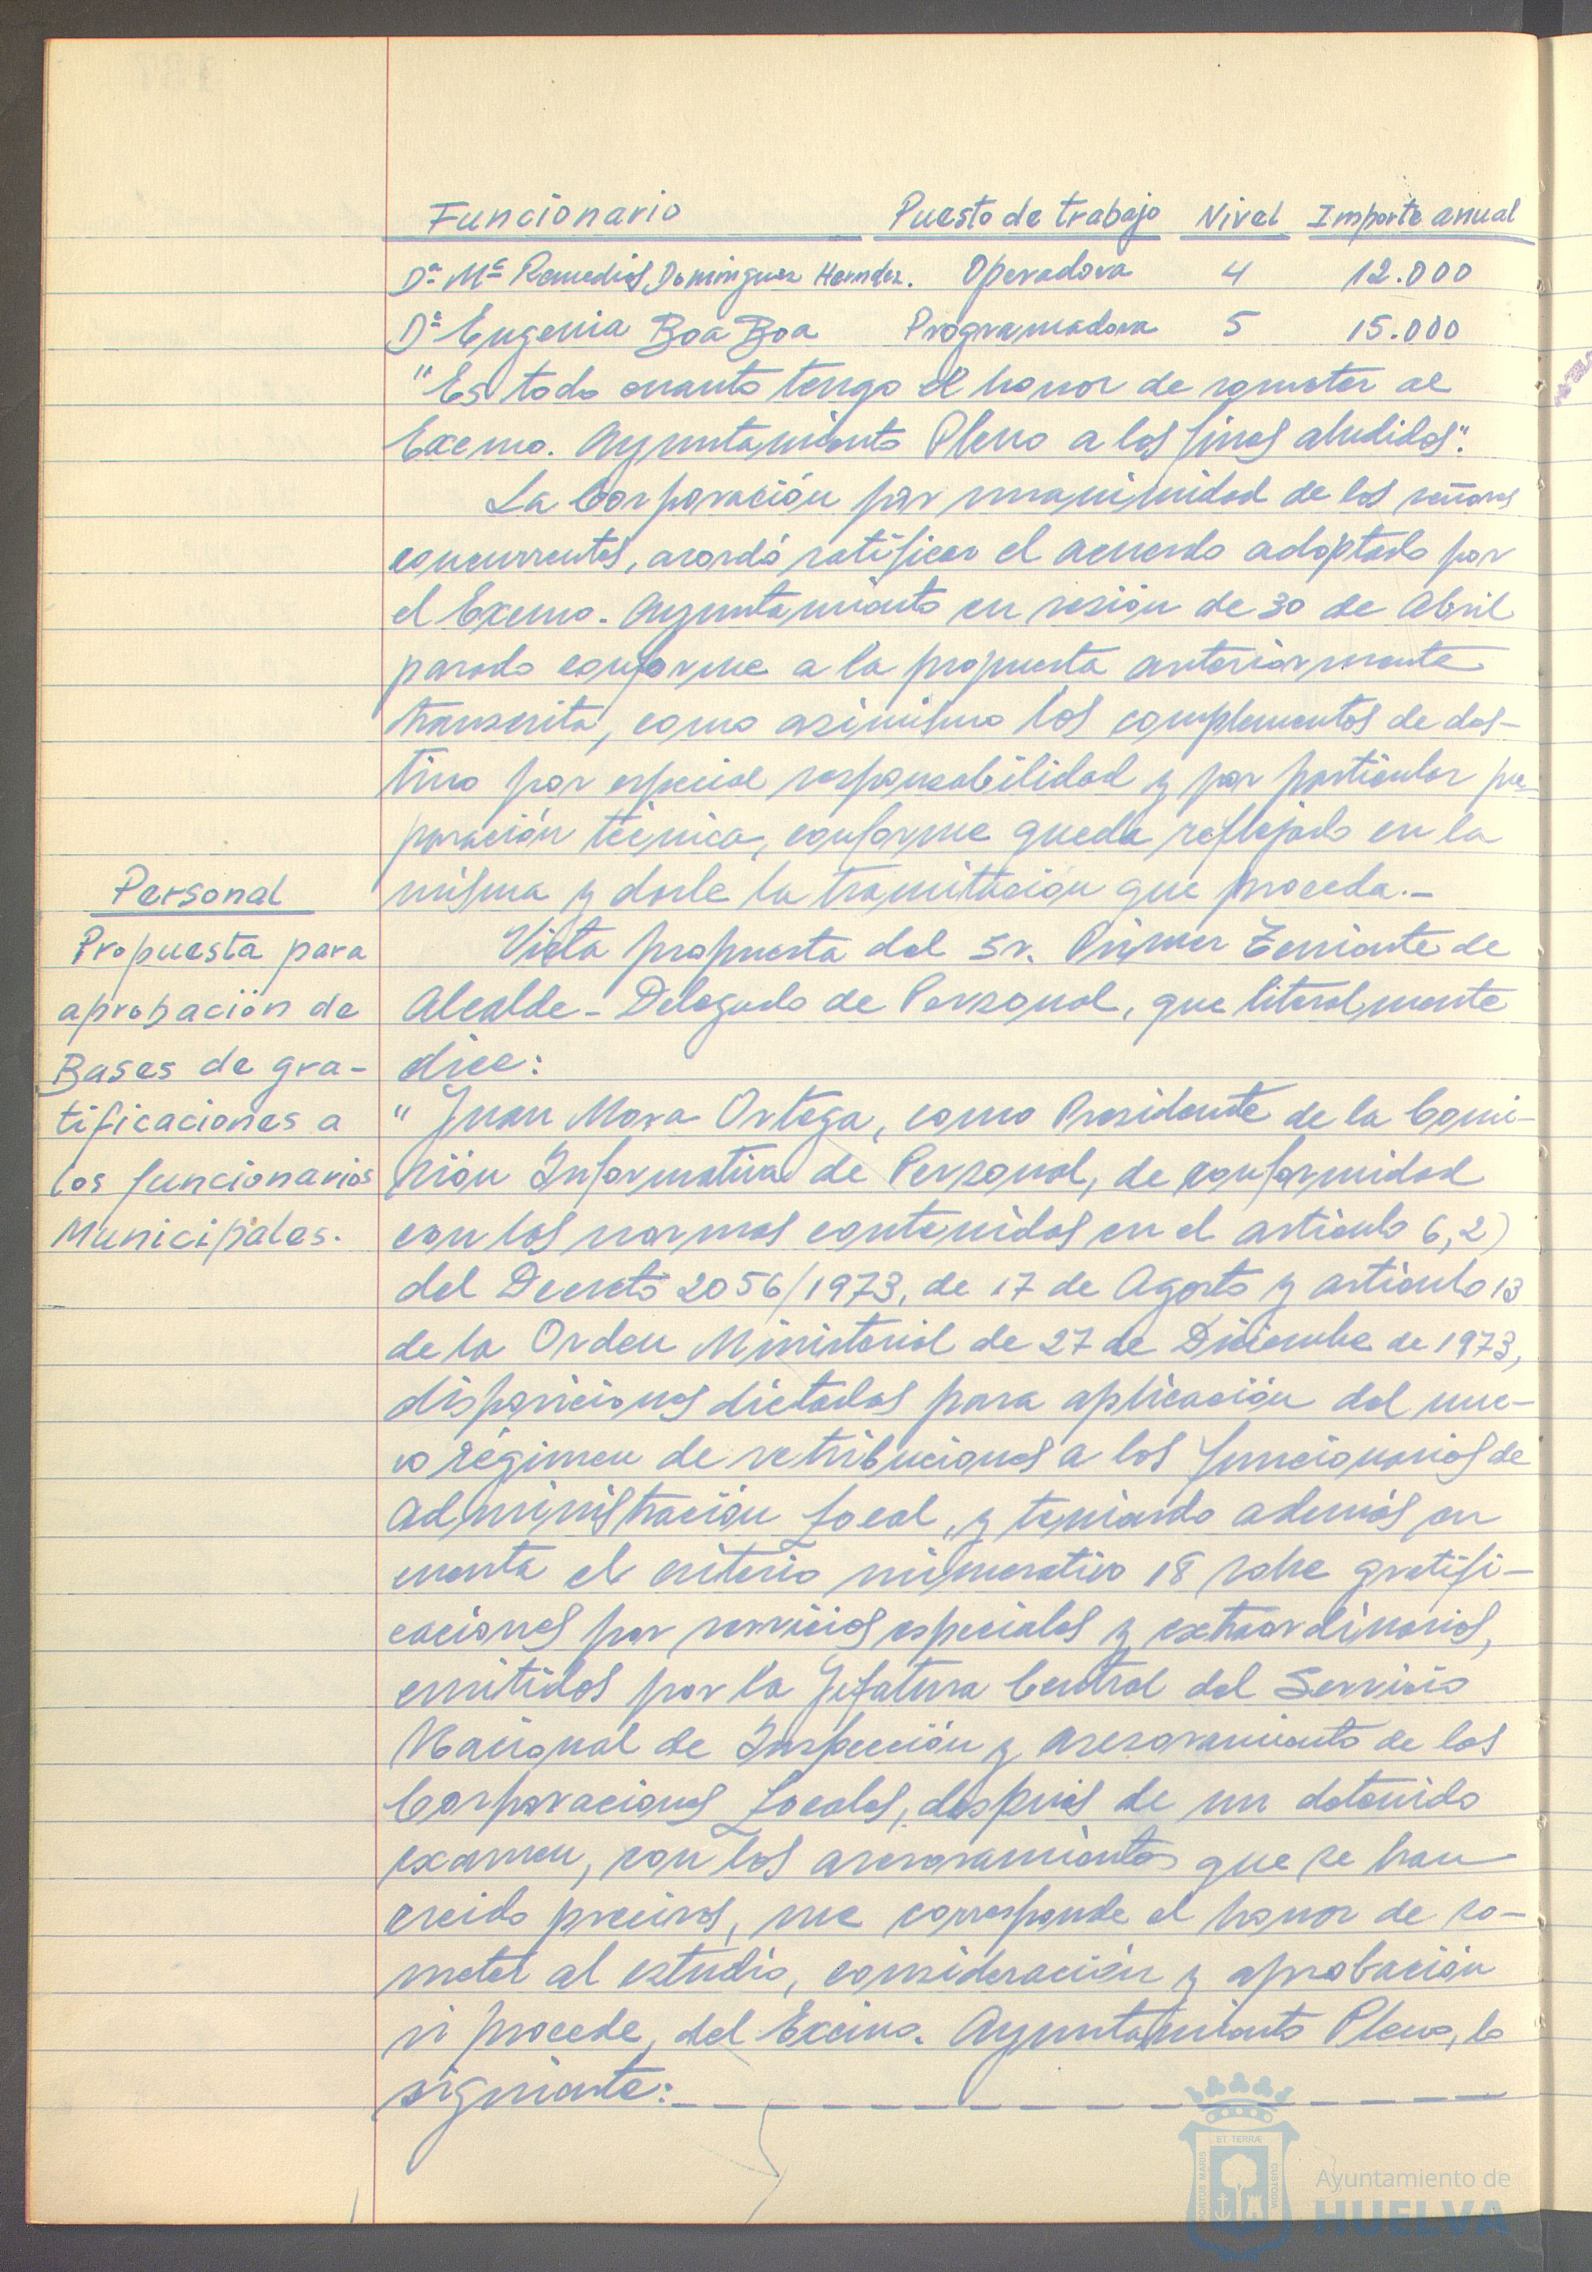 Funcionario Puesto de trabajo Nivel Importe anual
Dª Mª Remedios Dominguez Herndez. Operadora 4 12.000
Dª Eugenia Boa Boa Programadora 5 15.000
"Es todo cuanto tengo el honor de someter al
Excmo. Ayuntamiento Pleno a los fines aludidos".
La Corporación por unanimidad de los señores
concurrentes, acordó ratificar el acuerdo adoptado por
el Excmo. Ayuntamiento en sesión de 30 de Abril
pasado conforme a la propuesta anteriormente
transcrita, como asimismo los complementos de des-
tino por especial responsabilidad y por particular pre
paración técnica, conforme queda reflejado en la
misma y darle la tramitación que proceda.-
Personal
Propuesta para
aprobación de
Bases de gra-
tificaciones a
los funcionarios
Municipales.
Vista propuesta del Sr. Primer Teniente de
Alcalde - Delegado de Personal, que literalmente
dice:
" Juan Mora Ortega, como Presidente de la Comi-
sión Informativa de Personal, de conformidad
con las normas contenidas en el artículo 6,2)
del Decreto 2056/1973, de 17 de Agosto y artículo 13
de la Orden Ministerial de 27 de Diciembre de 1973,
disposiciones dictadas para aplicación del nue-
vo régimen de retribuciones a los funcionarios de
Administración Local, y teniendo además en
cuenta el criterio numerativo 18 sobre gratifi-
caciones por servicios especiales y extraordinarios,
emitidos por la Jefatura Central del Servicio
Nacional de Inspección y Asesoramiento de las
Corporaciones Locales, después de un detenido
examen, con los asesoramientos que se han
creido precisos, me corresponde el honor de so-
meter al estudio, consideración y aprobación
si procede, del Excmo. Ayuntamiento Pleno, lo
siguiente:
PORTUS MARIS ET TERRÆ CUSTODIA
Ayuntamiento de
HUELVA